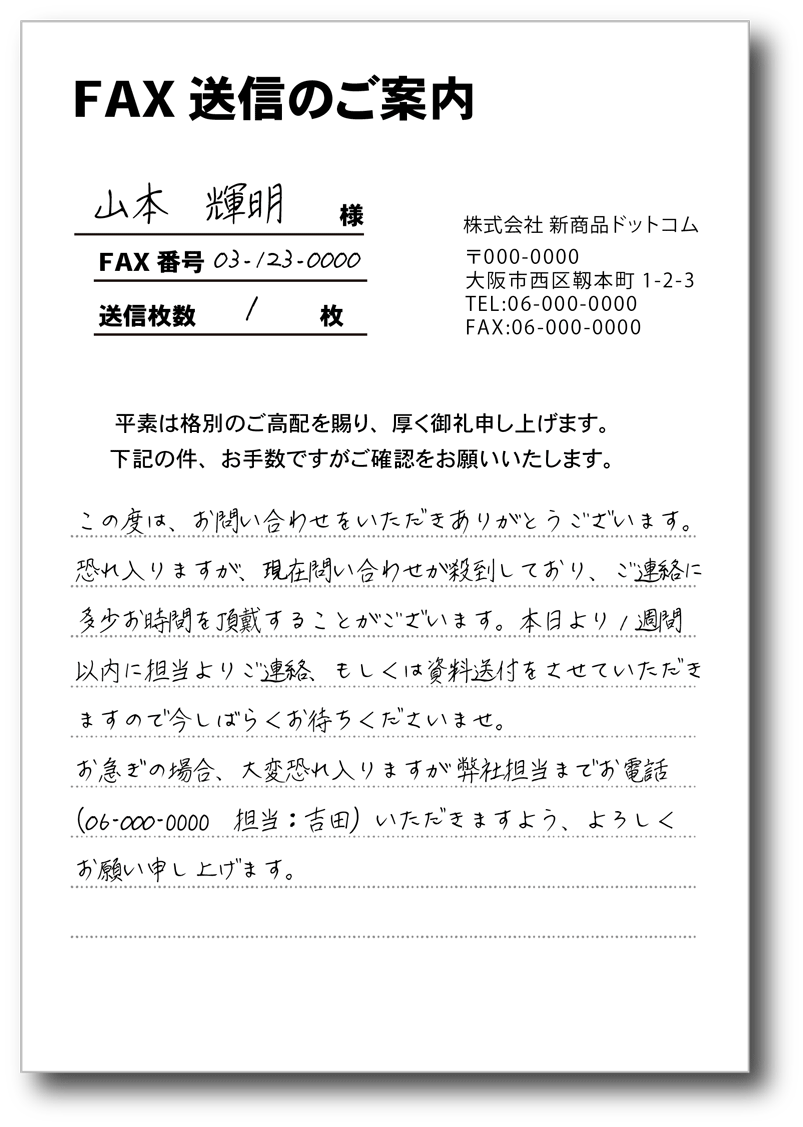 FAX 送信のご案内
山本　輝明　様
FAX 番号 03-123-0000
送信枚数　1　枚
株式会社 新商品ドットコム
〒000-0000
大阪市西区靱本町 1-2-3
TEL:06-000-0000
FAX:06-000-0000
平素は格別のご高配を賜り、厚く御礼申し上げます。
下記の件、お手数ですがご確認をお願いいたします。
この度は、お問い合わせをいただきありがとうございます。
恐れ入りますが、現在問い合わせが殺到しており、ご連絡に
多少お時間を頂戴することがございます。本日より1週間
以内に担当よりご連絡、もしくは資料送付をさせていただき
ますので今しばらくお待ちくださいませ。
お急ぎの場合、大変恐れ入りますが弊社担当までお電話
(06-000-0000　担当：吉田) いただきますよう、よろしく
お願い申し上げます。